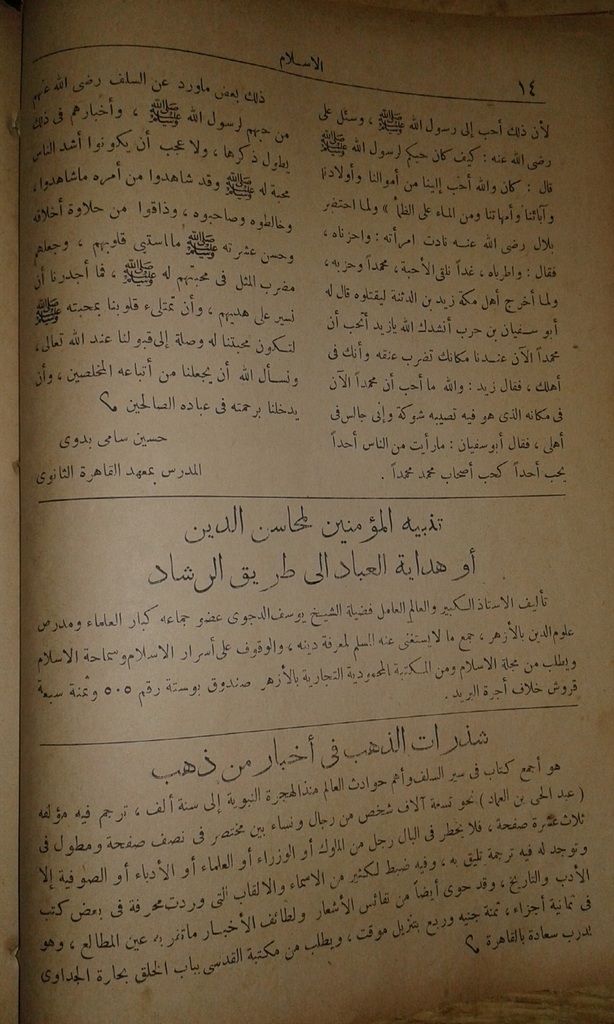 ١٤
الاسلام
لأن ذلك أحب إلى رسول الله ﷺ ، وسئل على
رضى الله عنه : كيف كان حبكم لرسول الله ﷺ
قال : كان والله أحب إلينا من أموالنا وأولادنا
وآبائنا وأمهاتنا ومن الماء على الظمأ » ولما احتضر
بلال رضى الله عنه نادت امرأته : واحزناه ،
فقال : واطرباه ، غداً نلقى الأحبة ، محمداً وحزبه ،
ولما أخرج أهل مكة زيد بن الدثنة ليقتلوه قال له
أبو سفيان بن حرب أنشدك الله يازيد أتحب أن
محمداً الآن عندنا مكانك تضرب عنقه وأنك فى
أهلك ، فقال زيد : والله ما أحب أن محمداً الآن
فى مكانه الذى هو فيه تصيبه شوكة وإنى جالس فى
أهلى ، فقال أبو سفيان : مارأيت من الناس أحداً
يحب أحداً كحب أصحاب محمد محمداً .
ذلك بعض ماورد عن السلف رضى الله عنهم
من حبهم لرسول الله ﷺ ، وأخبارهم فى ذلك
يطول ذكرها ، ولا عجب أن يكونوا أشد الناس
محبة له ﷺ وقد شاهدوا من أمره ماشاهدوا ،
وخالطوه وصاحبوه ، وذاقوا من حلاوة أخلاقه
وحسن عشرته ﷺ مااستبى قلوبهم ، وجعلهم
مضرب المثل فى محبتهم له ﷺ ، فما أجدرنا أن
نسير على هديهم ، وأن تمتلىء قلوبنا بمحبته ﷺ
لتكون محبتنا له وصلة إلى قبولنا عند الله تعالى ،
ونسأل الله أن يجعلنا من أتباعه المخلصين ، وأن
يدخلنا برحمته فى عباده الصالحين
حسين سامى بدوى
المدرس بمعهد القاهرة الثانوى
تنبيه المؤمنين لمحاسن الدين
أو هداية العباد الى طريق الرشاد
تأليف الاستاذ الكبير والعالم العامل فضيلة الشيخ يوسف الدجوى عضو جماعه كبار العلماء ومدرس
علوم الدين بالأزهر ، جمع ما لا يستغنى عنه المسلم لمعرفة دينه ، والوقوف على أسرار الاسلام وسماحة الاسلام
ويطلب من مجلة الاسلام ومن المكتبة المحمودية التجارية بالأزهر صندوق بوستة رقم ٥٠٥ وثمنة سبعة
قروش خلاف أجرة البريد .
شذرات الذهب فى أخبار من ذهب
هو أجمع كتاب فى سير السلف وأهم حوادث العالم منذ الهجرة النبوية إلى سنة ألف ، ترجم فيه مؤلفه
( عبد الحى بن العماد ) نحو تسعة آلاف شخص من رجال ونساء بين مختصر فى نصف صفحة ومطول فى
ثلاث عشرة صفحة ، فلا يخطر فى البال رجل من الملوك أو الوزراء أو العلماء أو الأدباء أو الصوفية إلا
وتوجد له فيه ترجمة تليق به ، وفيه ضبط لكثير من الاسماء والالقاب التى وردت محرفة فى بعض كتب
الأدب والتاريخ ، وقد حوى أيضاً من نفائس الأشعار ولطائف الأخبار ماتقر به عين المطالع ، وهو
فى ثمانية أجزاء ، ثمنه جنيه وربع بتنزيل موقت ، ويطلب من مكتبة القدسى بباب الخلق بحارة الجداوى
بدرب سعادة بالقاهرة